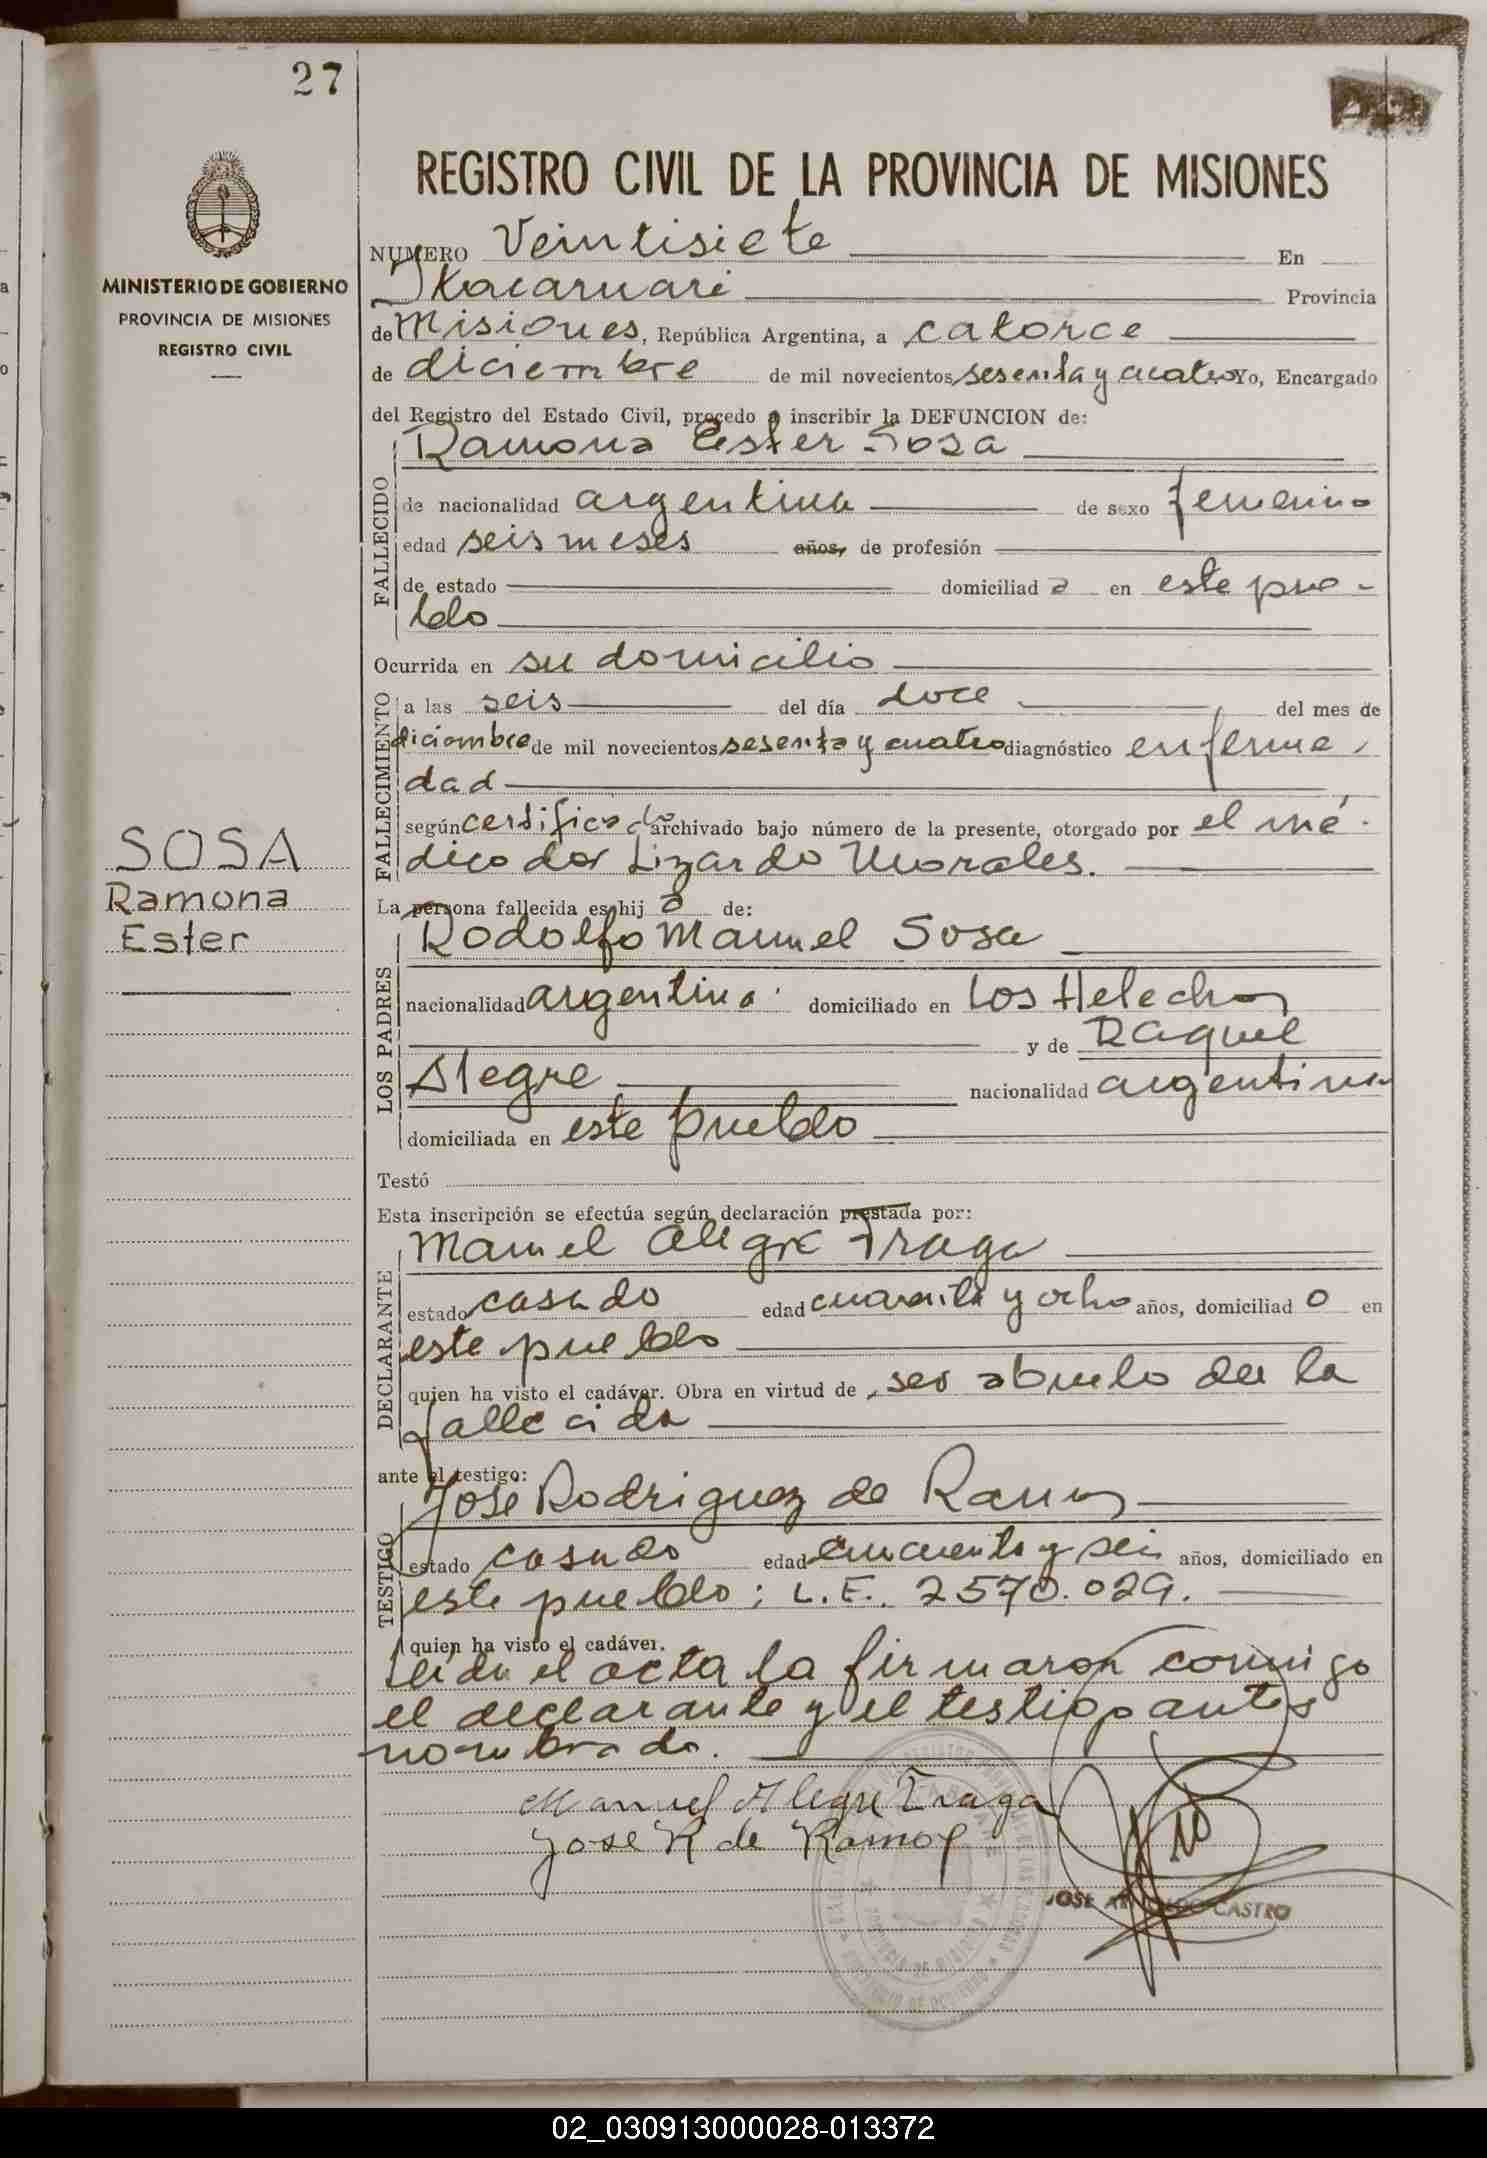 27
MINISTERIO DE GOBIERNO
PROVINCIA DE MISIONES
REGISTRO CIVIL
SOSA
Ramona
Ester
REGISTRO CIVIL DE LA PROVINCIA DE MISIONES
NUMERO Veintisiete En
Itacaruaré Provincia
de Misiones, República Argentina, a catorce
de diciembre de mil novecientos sesenta y cuatro Yo, Encargado
del Registro del Estado Civil, procedo a inscribir la DEFUNCION de:
Ramona Ester Sosa
FALLECIDO
de nacionalidad argentina de sexo femenino
edad seis meses años, de profesión
de estado domiciliad a en este pue-
blo
Ocurrida en su domicilio
FALLECIMIENTO
a las seis del día doce del mes de
diciembre de mil novecientos sesenta y cuatro diagnóstico enferme-
dad
según certificado archivado bajo número de la presente, otorgado por el mé-
dico dor Lizardo Morales.
La persona fallecida es hij a de:
LOS PADRES
Rodolfo Manuel Sosa
nacionalidad argentina domiciliado en Los Helechos
y de Raquel
Alegre nacionalidad argentina
domiciliada en este pueblo
Testó
Esta inscripción se efectúa según declaración prestada por:
DECLARANTE
Manuel Alegre Fraga
estado casado edad cuarenta y ocho años, domiciliad o en
este pueblo
quien ha visto el cadáver. Obra en virtud de ser abuelo de la
fallecida
ante el testigo:
TESTIGO
José Rodriguez de Ramos
estado casado edad cincuenta y seis años, domiciliado en
este pueblo; L.E. 2570.029.
quien ha visto el cadáver.
Leída el acta la firmaron conmigo
el declarante y el testigo antes
nombrado.
Manuel Alegre Fraga
Jose R de Ramos
JOSE ARNOLDO CASTRO
02_030913000028-013372